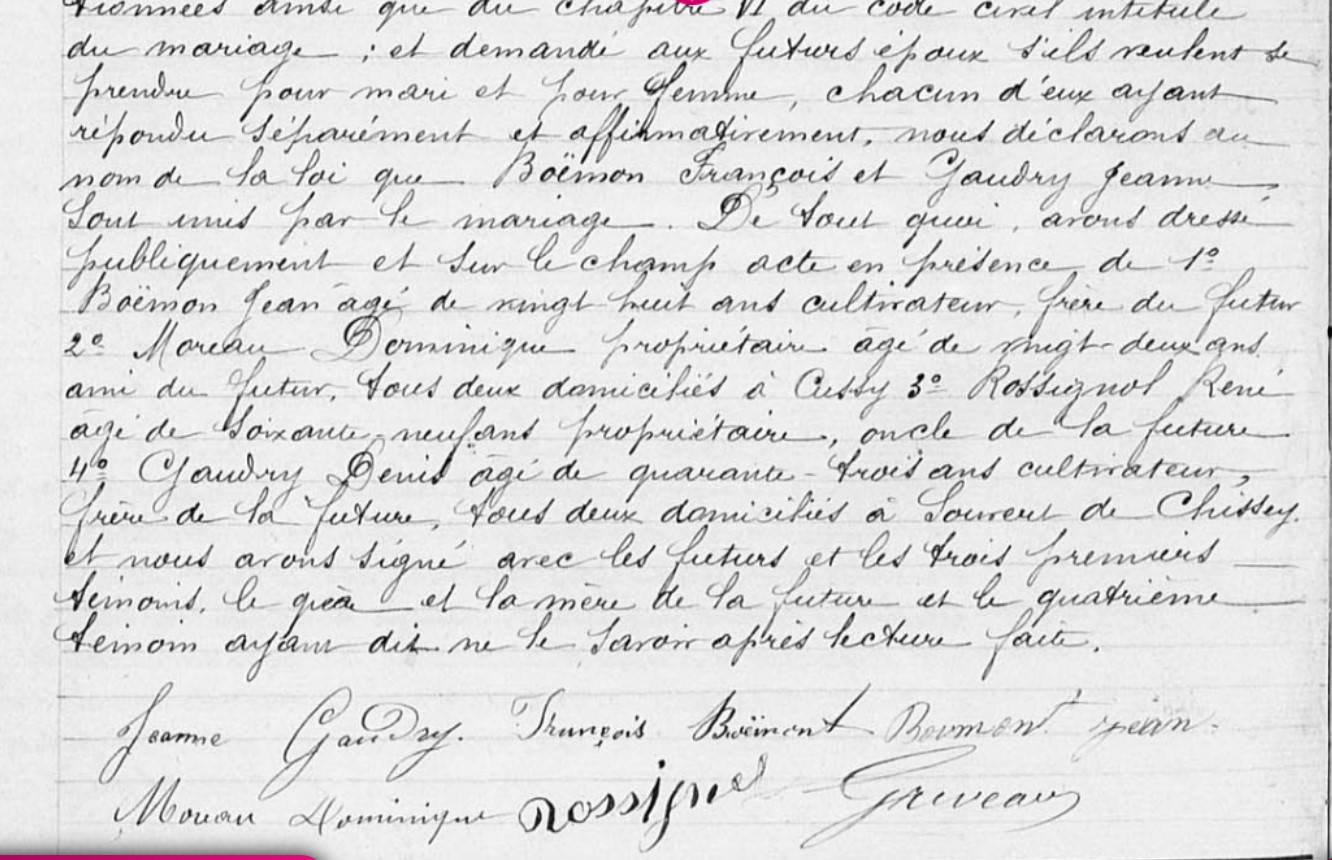 tionnées ainsi que du chapitre VI du code civil intitulé
du mariage ; et demandé aux futurs époux s'ils veulent se
prendre pour mari et pour femme, chacun d'eux ayant
répondu séparément et affirmativement, nous déclarons au
nom de la loi que Boëmon François et Gaudry Jeanne,
sont unis par le mariage. De tout quoi, avons dressé
publiquement et sur le champ acte en présence de 1º
Boëmon Jean âgé de vingt huit ans cultivateur, frère du futur
2º Moreau Dominique propriétaire âgé de vingt-deux ans
ami du futur, tous deux domiciliés à Cussy 3º Rossignol René
âgé de soixante neuf ans propriétaire, oncle de la future
4º Gaudry Denis âgé de quarante-trois ans cultivateur,
frère de la future, tous deux domiciliés à Souvert de Chissey.
et nous avons signé avec les futurs et les trois premiers
témoins, le et la mère de la future et le quatrième
témoin ayant dit ne le savoir après lecture faite.
Jeanne Gaudry. François Boëmont Boemont Jean.
Moreau Dominique Rossignol Griveau